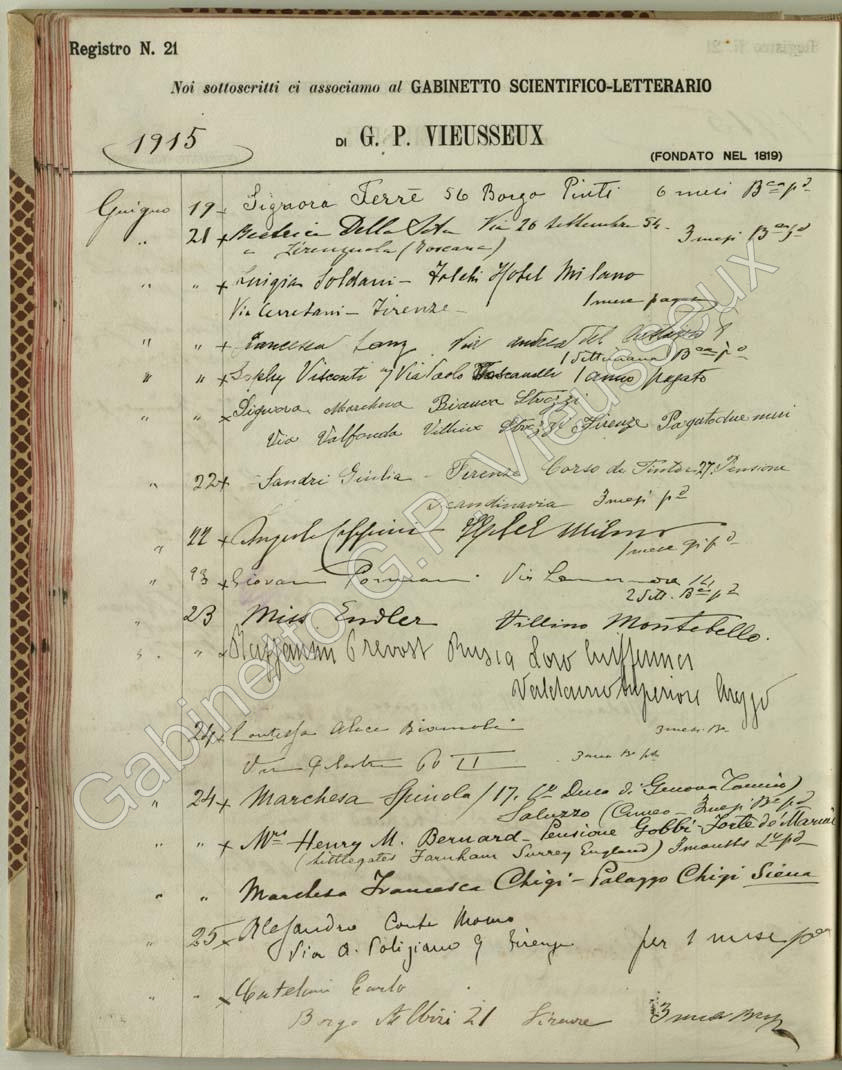 Registro N. 21
Noi sottoscritti ci associamo al GABINETTO SCIENTIFICO-LETTERARIO
1915
DI G. P. VIEUSSEUX
(FONDATO NEL 1819)
Giugno 19 x Signora Ferrè 56 Borgo Pinti 6 mesi B.ca p.o
" 21 x Beatrice Della Seta Via 26 Settembre 54.
a (Toscana) 3 mesi
" " x Luigia Soldani - Hotel Milano
Via Cerretani - Firenze - 1 mese pagato
" " x Francesca Via Andrea del
1 settimana
" " x Sophy Visconti 7 Via Paolo Toscanelli 1 anno pagato
" " x Signora Marchesa Bianca Strozzi
Via Valfonda Villino Strozzi Firenze Pagato due mesi
" 22 x Sandri Giulia - Firenze Corso dei Tintori 27. Pensione
Scandinavia 3 mesi p.o
" 22 x Hotel Milano
1 mese
" 23 x Giovanni Via
2 Sett. p.o
" 23 Miss Endler Villino Montebello.
" " x Prevost Rusca Loro Ciuffenna
Valdarno Superiore Arezzo
24 x Contessa Alice 3 mesi
Via II
" 24 x Marchesa Spinola / 17. C.so Duca di Genova Torino)
Saluzzo (Cuneo - 3 mesi p.o
" " x Mrs Henry M. Bernard - Pensione Gobbi - Forte dei Marmi
(Littlegates Farnham Surrey England) 3 months p.o
" " Marchesa Francesca Chigi - Palazzo Chigi Siena
" 25 x Alessandro Conte
Via A. Poliziano 9 Firenze per 1 mese
" " x Carlo
Borgo Albizi 21 Firenze 3 mesi
Gabinetto G.P. Vieusseux